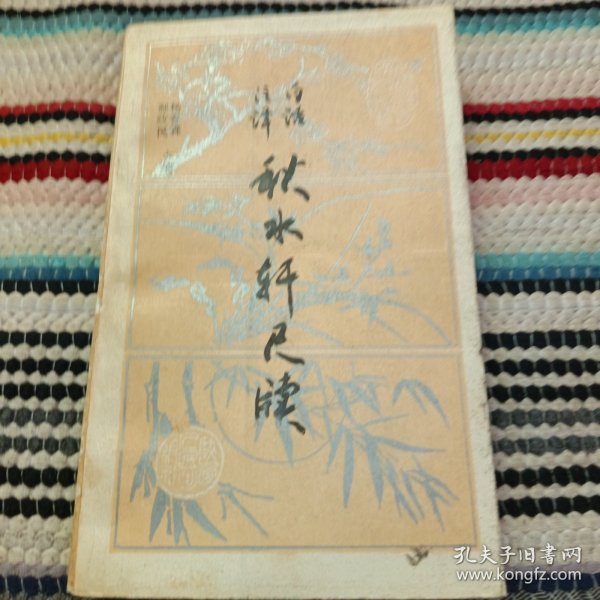 白话
注译
秋水轩尺牍
孔夫子旧书网
www.kongfz.com